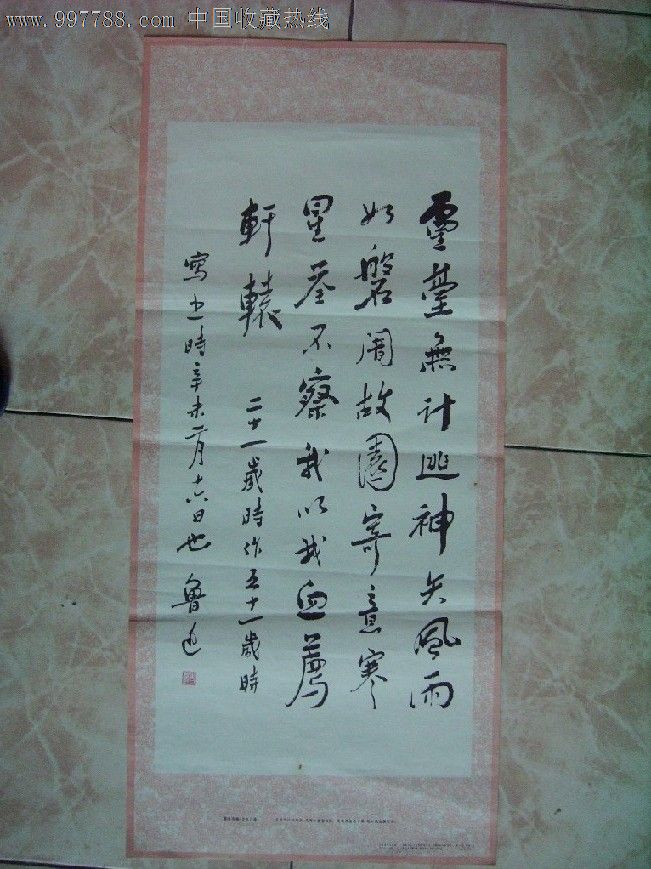 www.997788.com 中国收藏热线
靈臺無計逃神矢風雨
如磐闇故園寄意寒
星荃不察我以我血薦
軒轅 二十一歲時作五十一歲時
寫之時辛未二月十六日也 魯迅